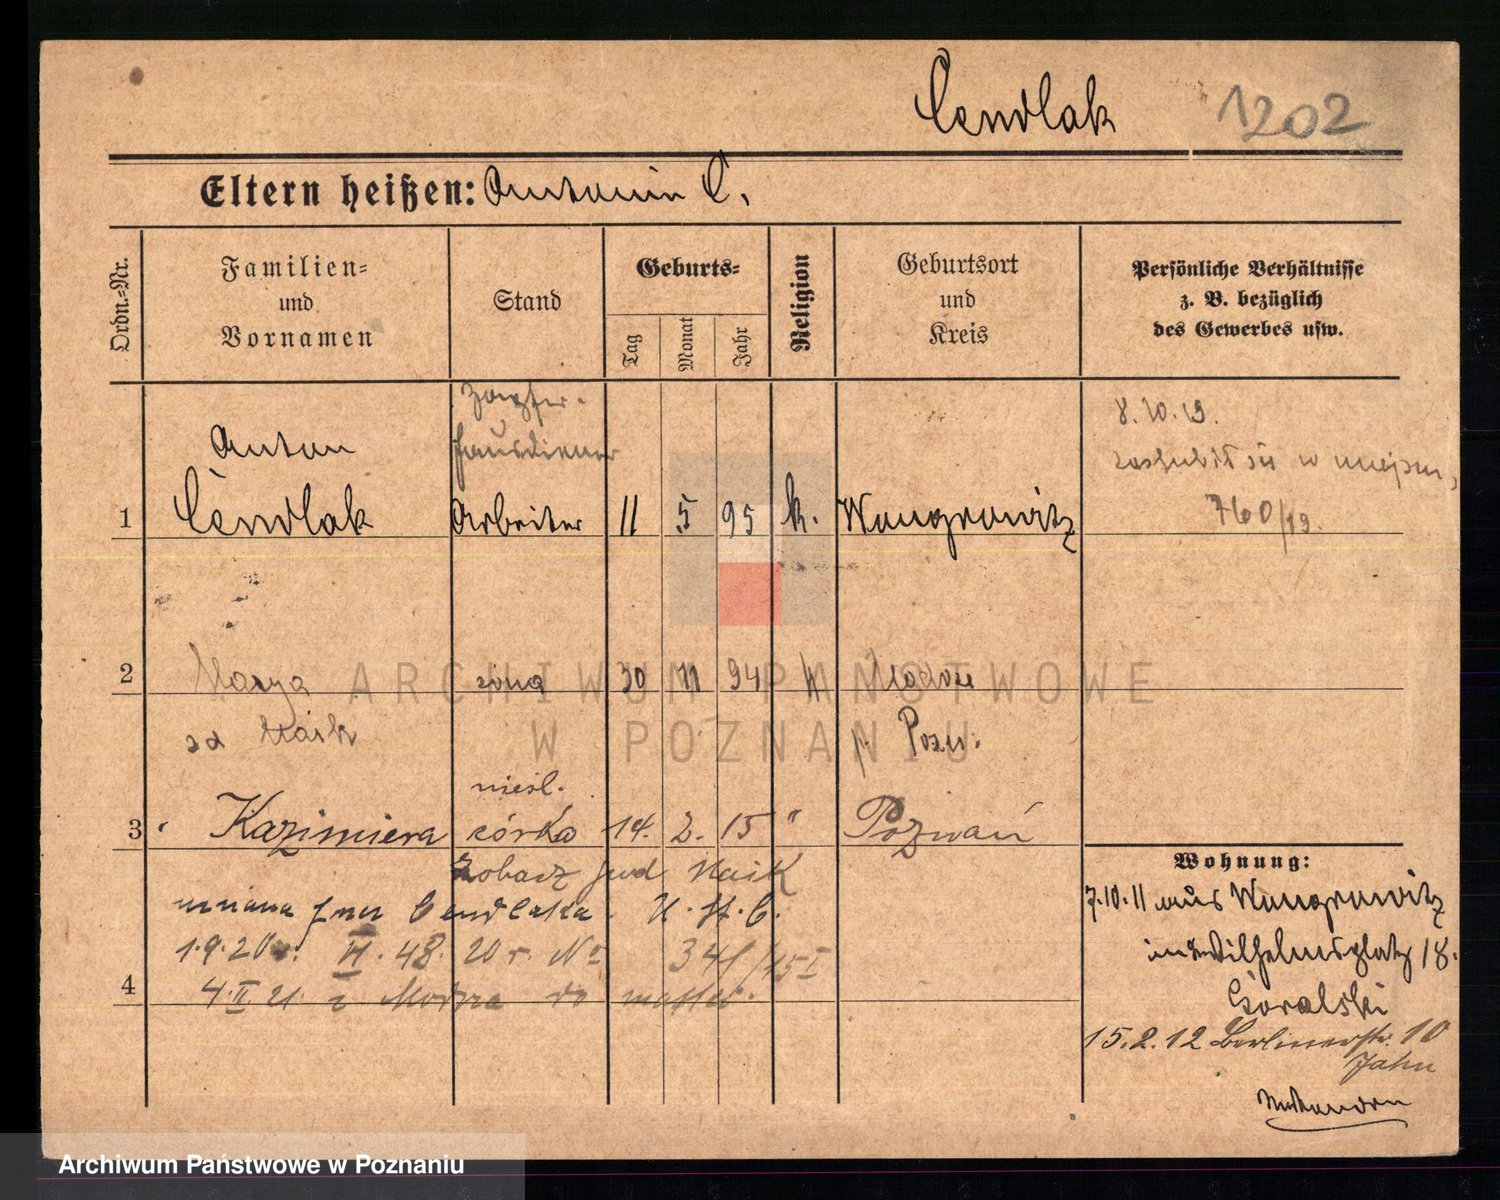 Cendlak 1202
Eltern heißen: Antonin C.
Ordn.-Nr.
Familien-
und
Vornamen
Stand
Geburts-
Tag
Monat
Jahr
Religion
Geburtsort
und
Kreis
Persönliche Verhältnisse
z. B. bezüglich
des Gewerbes usw.
Zapfer.
Hausdiener
8.10.19.
zaślubił się w miejscu,
760/19.
Anton
1 Cendlak Arbeiter 11 5 95 k. Wongrowitz
2 Marya żona 30 11 94 k
zd Haik p. Pozn.
nieśl.
3 Kazimiera córka 14. 2. 15 " Poznań
zobacz pod Haik
Cendlaka. U. St. C.
1.9.20 VI. 48. 20 r. No 341/15 I
4 4.II 21 z do
Wohnung:
7.10.11 aus Wongrowitz
Wilhelmsplatz 18.
Góralski
15.2.12 Berlinerstr. 10
Jahn
ARCHIWUM PAŃSTWOWE
W POZNANIU
Archiwum Państwowe w Poznaniu